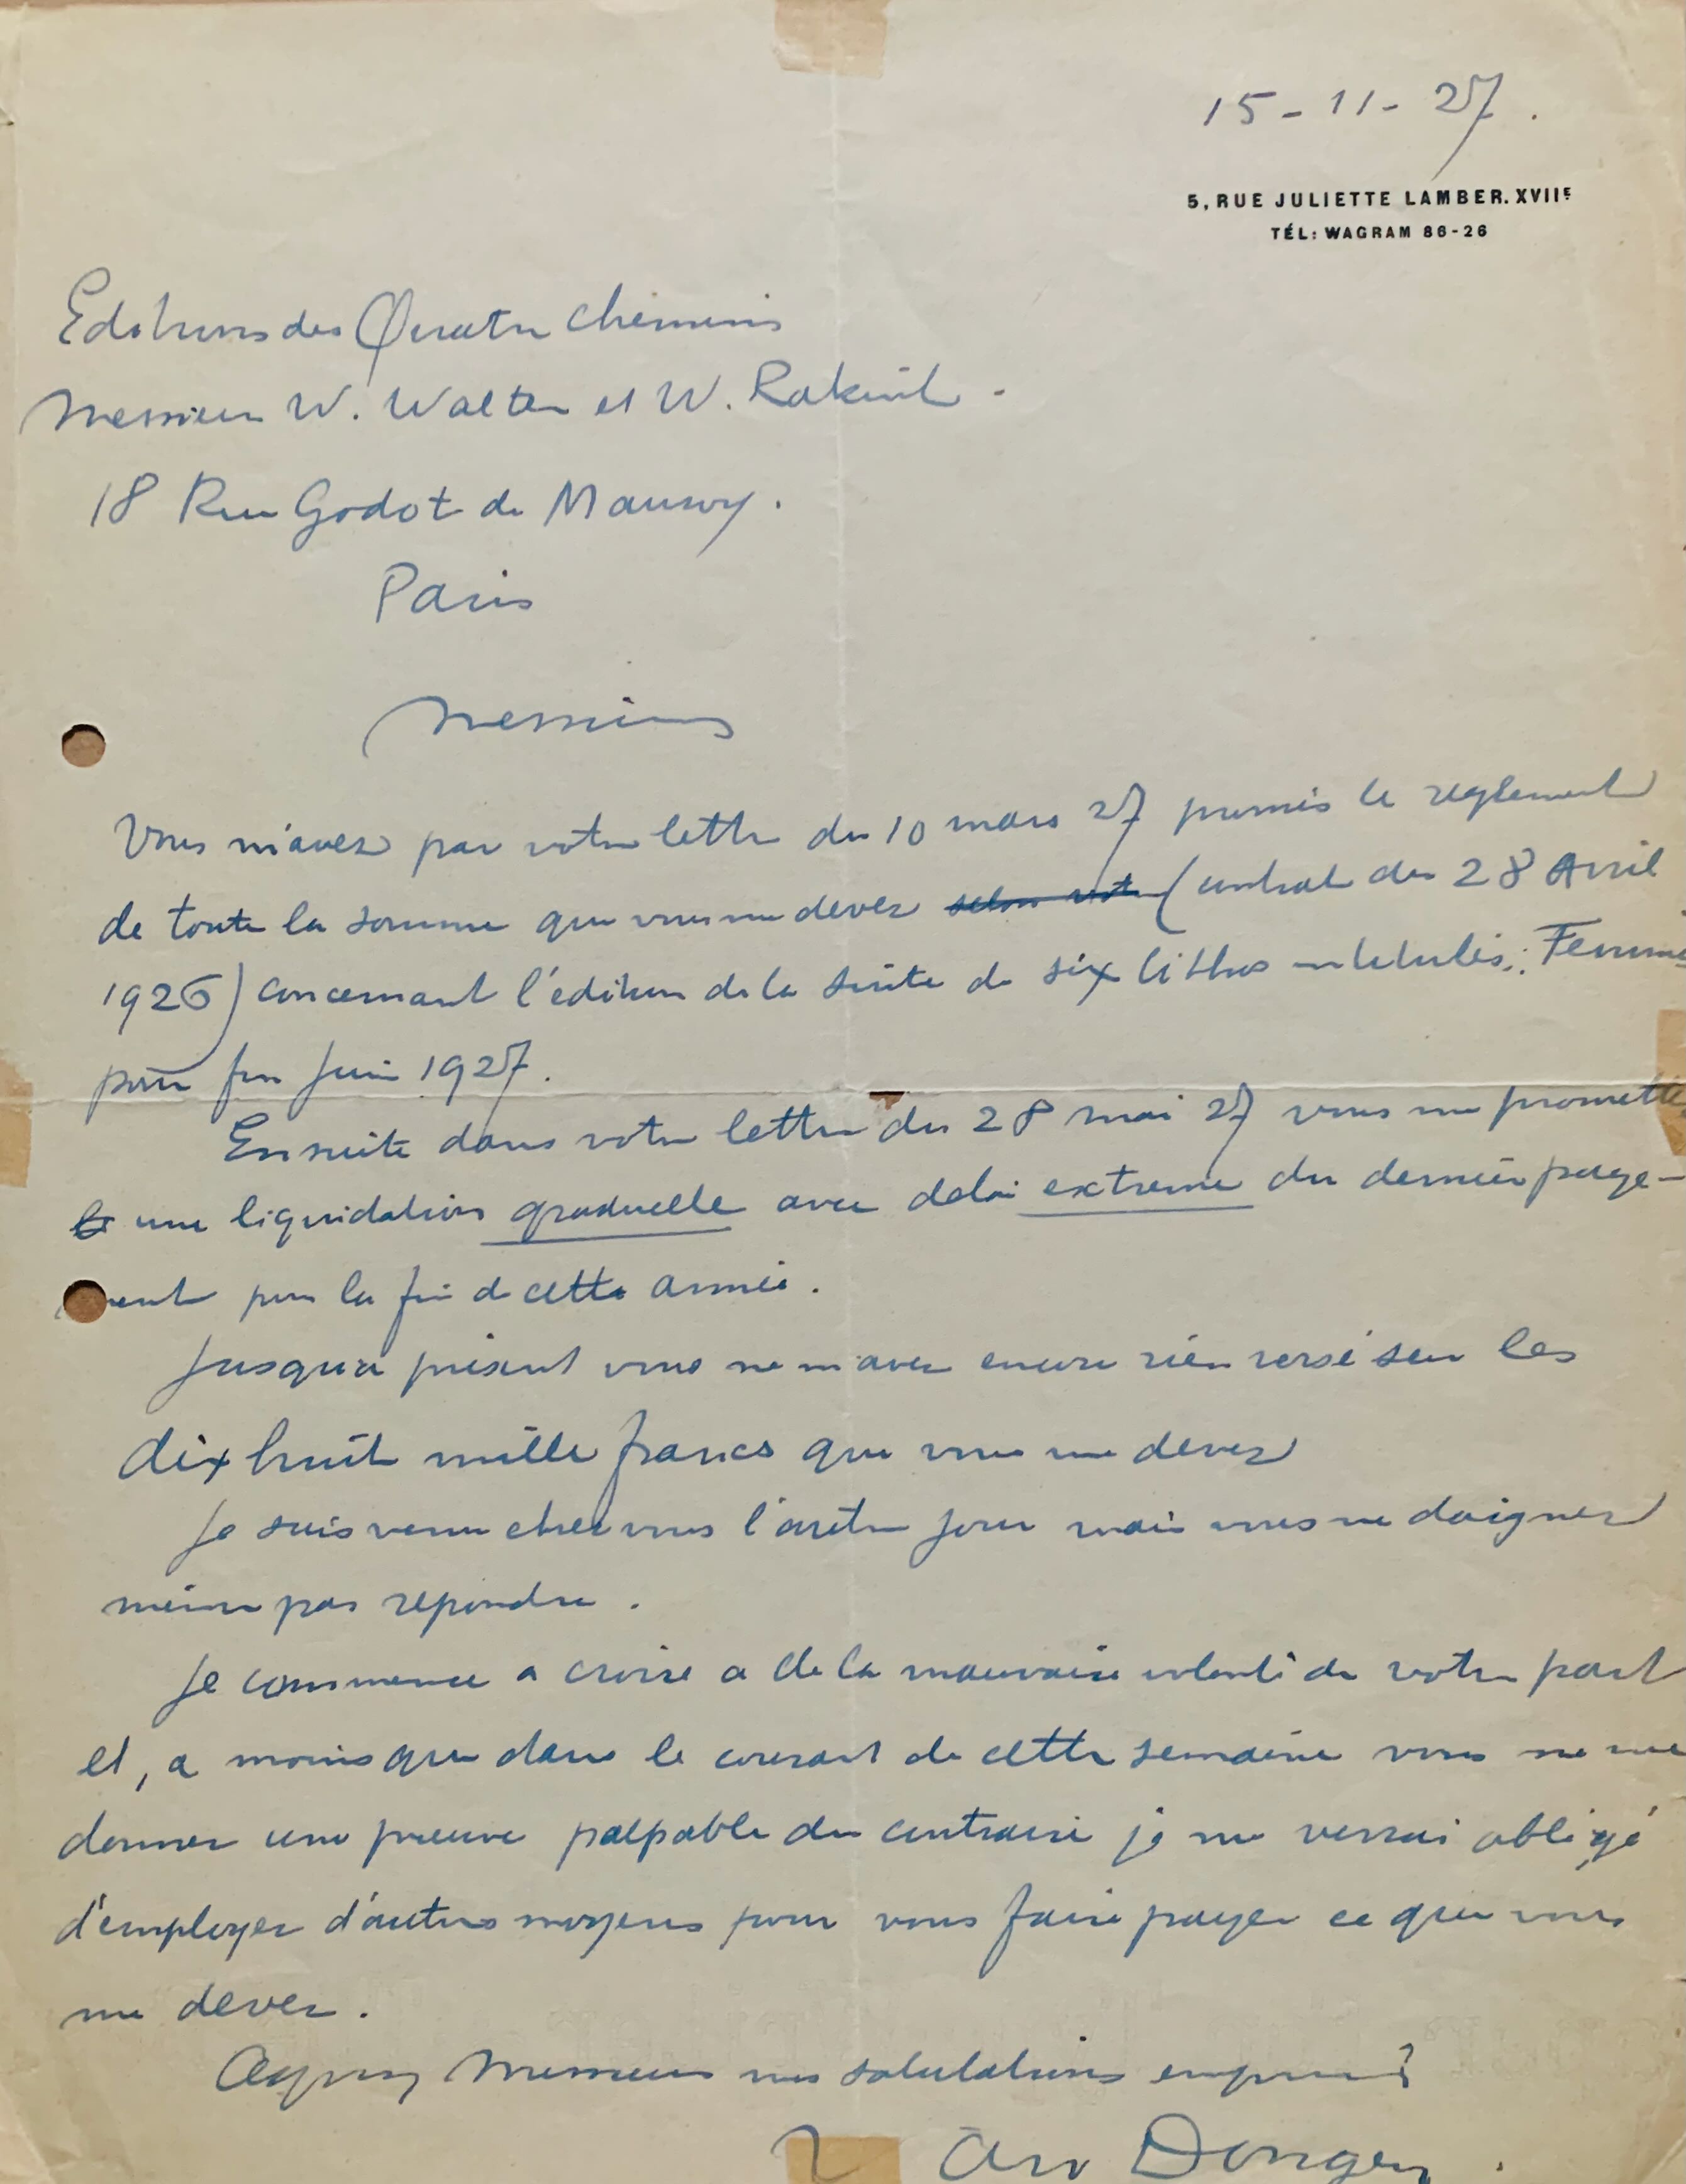 15-11-27.
5, RUE JULIETTE LAMBER. XVIIE
TÉL: WAGRAM 86-26
Editions des Quatre Chemins
Messieurs W. Walter et W.
18 Rue Godot de Mauroy.
Paris
Messieurs
Vous m'avez par votre lettre du 10 mars 27 promis le reglement
de toute la somme que vous me devez selon votre (contrat du 28 Avril
1926) concernant l'édition de la suite de six lithos intitulés: Femmes
pour fin Juin 1927.
Ensuite dans votre lettre du 28 mai 27 vous me promettez
une liquidation graduelle avec delai extreme du dernier paye-
ment pour la fin de cette année.
Jusqu'a présent vous ne m'avez encore rien versé sur les
dix huit mille francs que vous me devez
Je suis venu chez vous l'autre jour mais vous ne daignez
même pas repondre.
Je commence a croire a de la mauvaise volonté de votre part
et, a moins que dans le courant de cette semaine vous ne me
donnez une preuve palpable du contraire je me verrai obligé
d'employer d'autres moyens pour vous faire payer ce que vous
me devez.
Agreez Messieurs mes salutations empressées
Van Dongen.